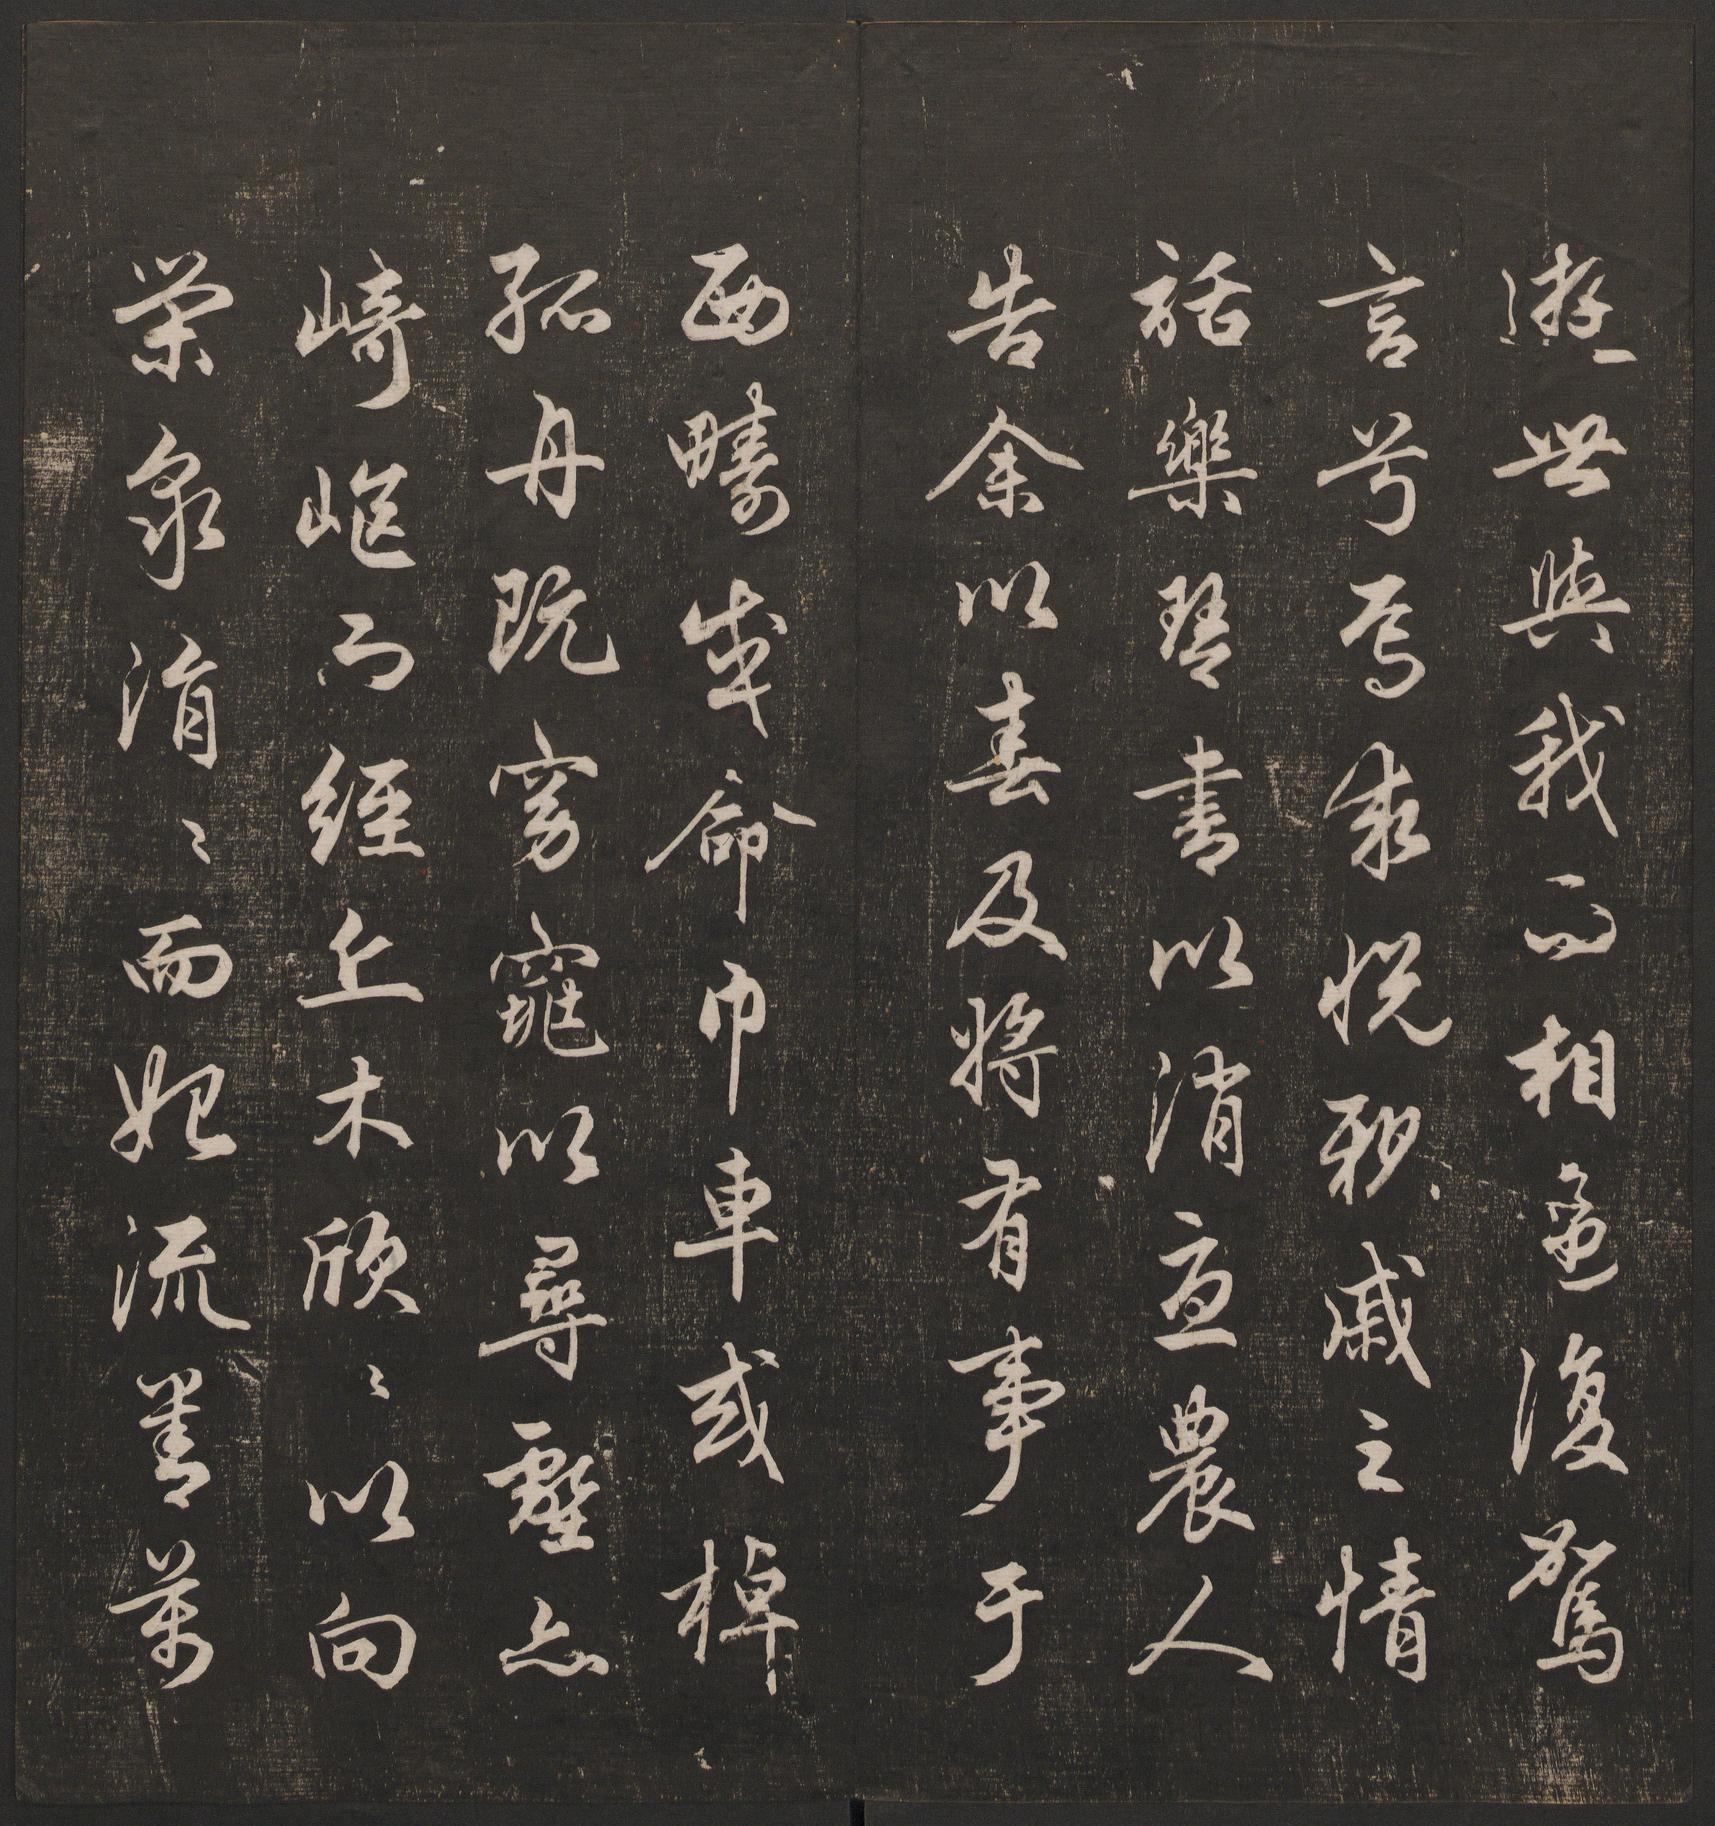 遊世與我而相違復駕
言兮焉求悅親戚之情
話樂琴書以消憂農人
告余以春及將有事于
西疇歲命巾車或棹
孤舟既窈窕以尋壑亦
崎嶇而經丘木欣〻以向
榮泉涓〻而始流善萬